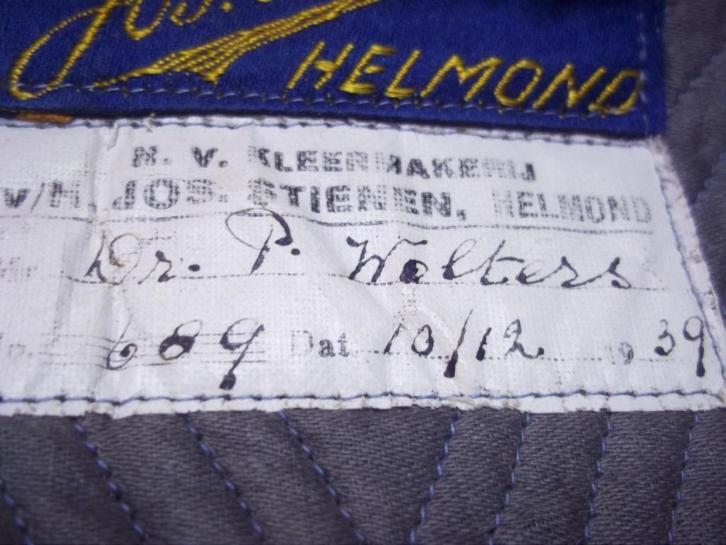 Jos.
HELMOND
N. V. KLEERMAKERIJ
v/H. JOS. STIENEN, HELMOND
Mr. Dr. P. Wolters
No. 689 Dat. 10/12 1939